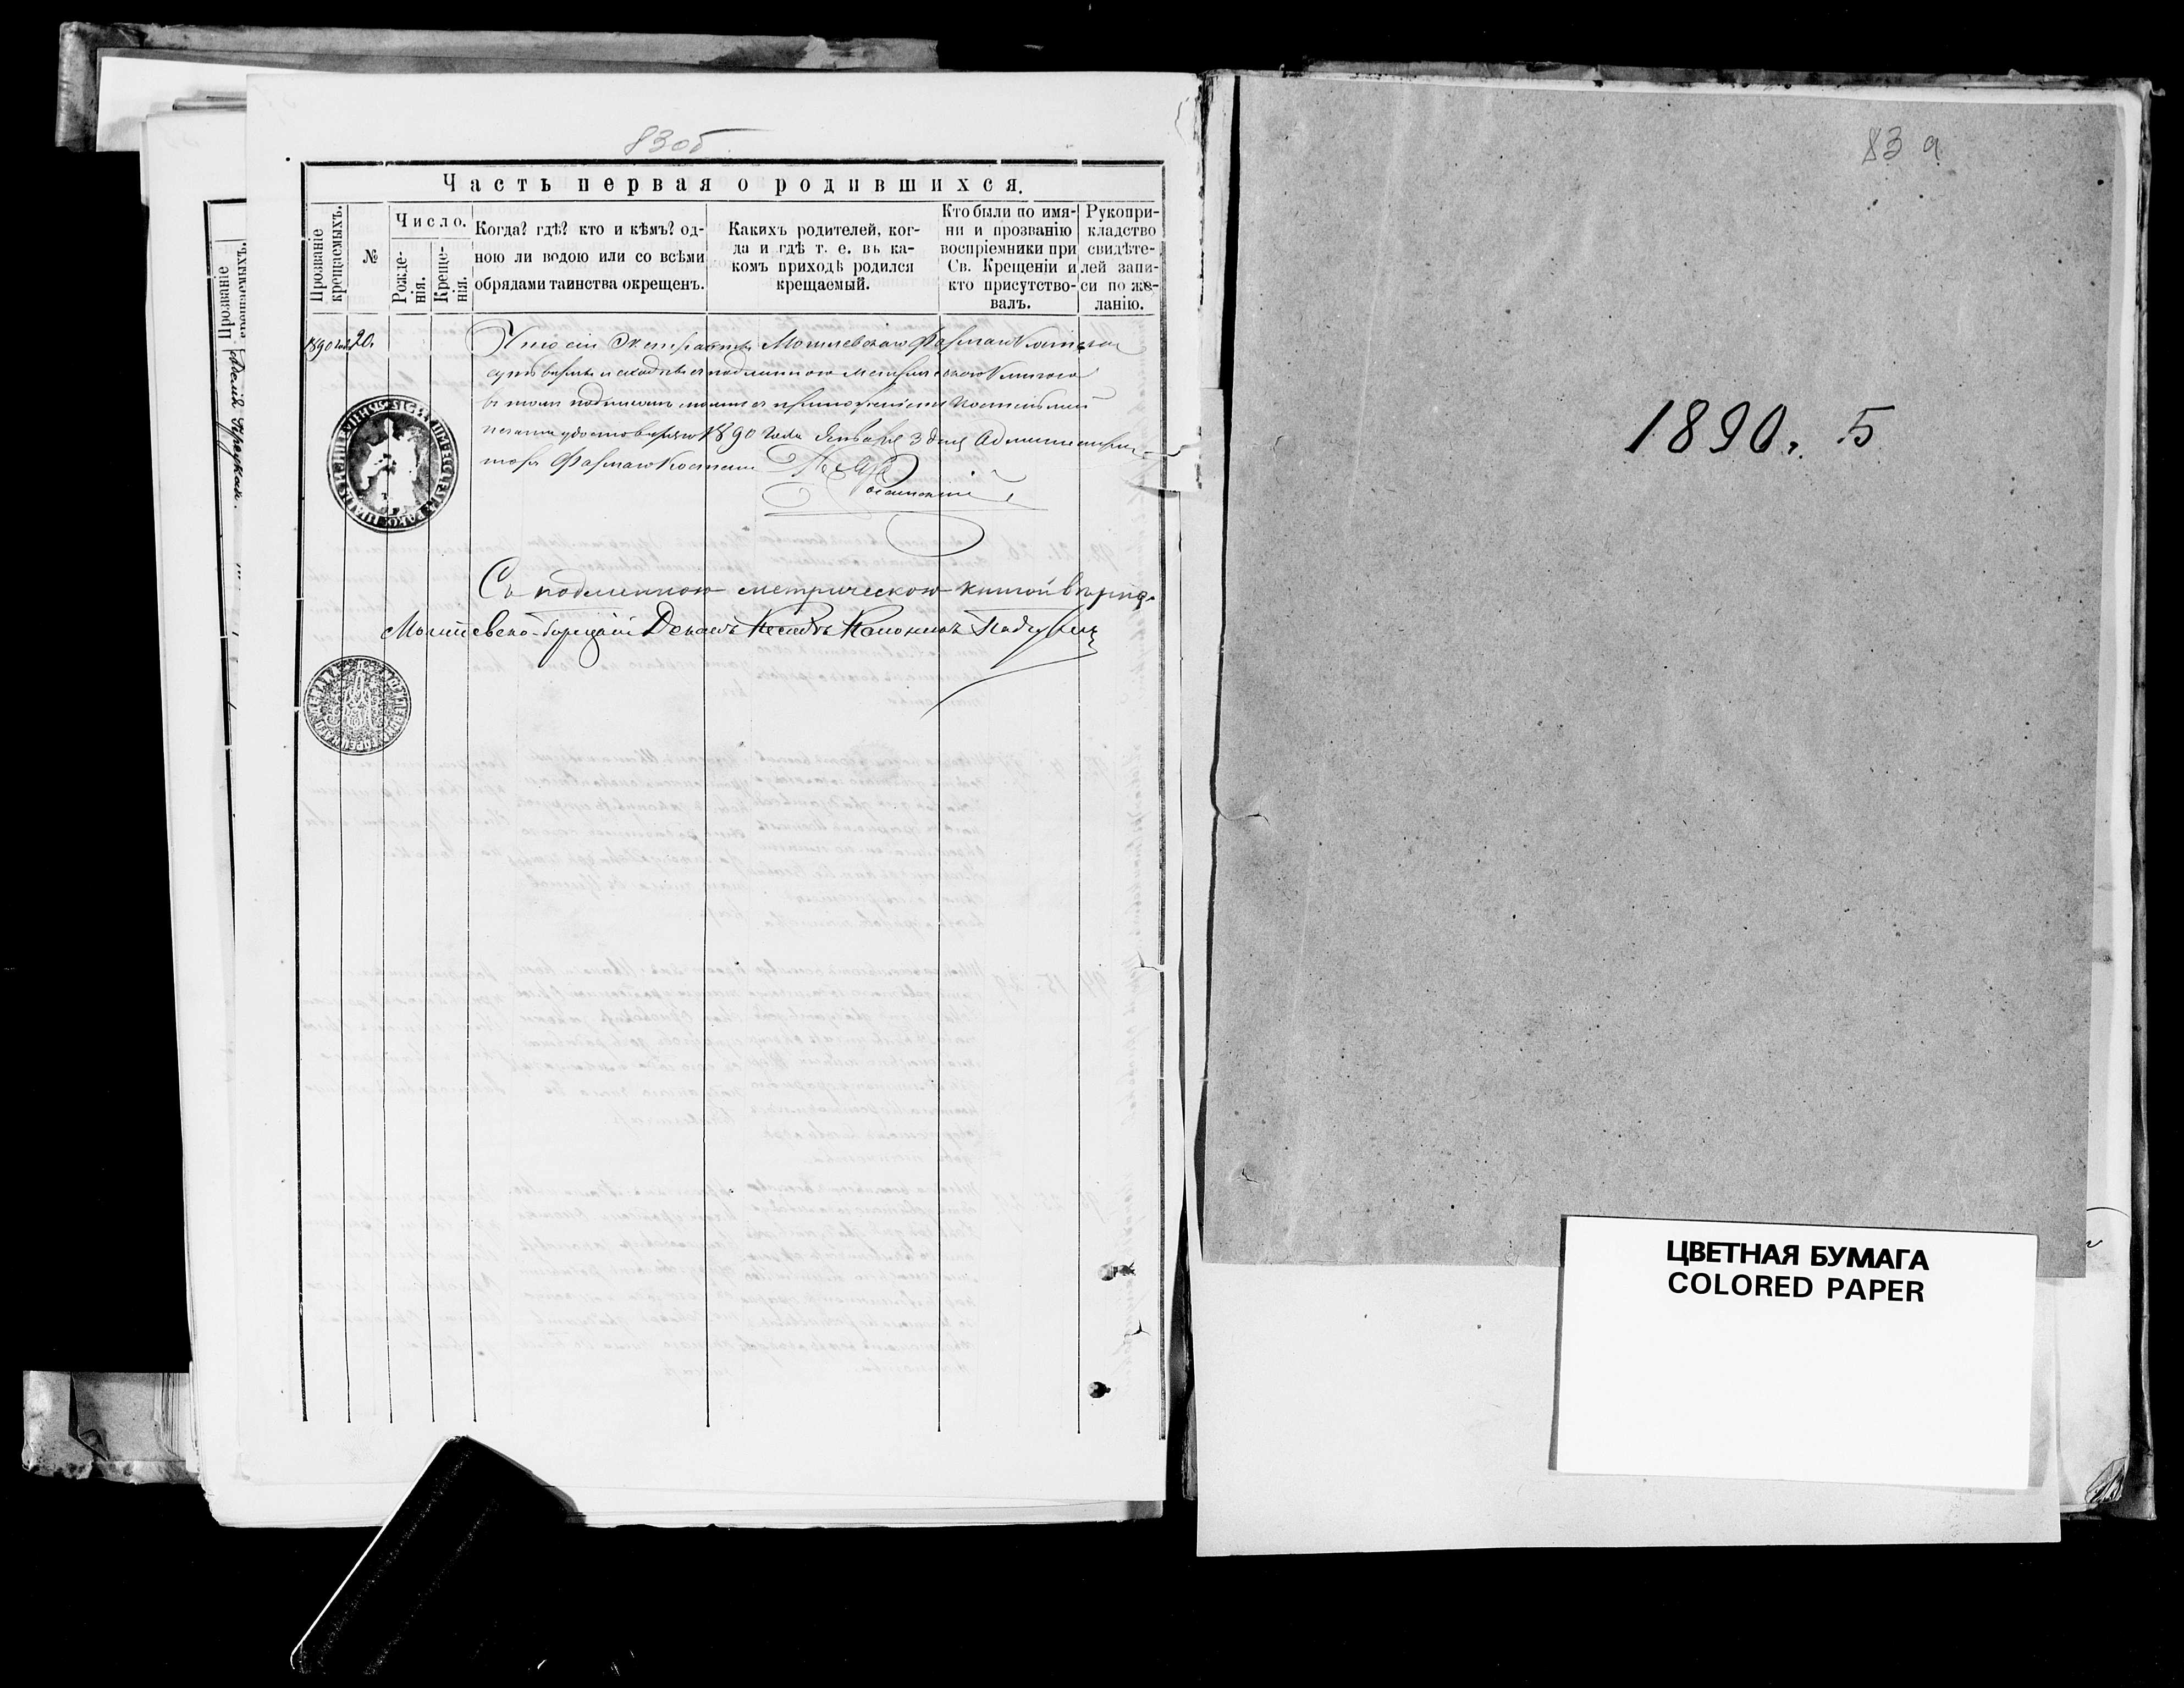 83об
Часть первая о родившихся.
Прозваніе крещаемыхъ.
№
Число.
Рожде-
нія.
Креще-
нія.
Когда? гдѣ? кто и кѣмъ? од-
ною ли водою или со всѣми
обрядами таинства окрещенъ.
Какихъ родителей, ког-
да и гдѣ т. е. въ ка-
комъ приходѣ родился
крещаемый.
Кто были по имя-
ни и прозванію
воспріемники при
Св. Крещеніи и
кто присутство-
валъ.
Рукопри-
кладство
свидѣте-
лей запи-
си по же-
ланію.
Что сіи Экстракты Могилевскаго Фарнаго Костела
суть вѣрны и сходны съ подлинною метрическою книгою
въ томъ подписомъ моимъ съ приложеніемъ костельной
печати удостовѣряю 1890 года Января 3 дня Администра-
торъ Фарнаго Костела
Съ подлинною метрическою книгой вѣрно.
Могилевско-Горецкій Деканъ
Прозваніе
83 а
1890 г. 5
ЦВЕТНАЯ БУМАГА
COLORED PAPER